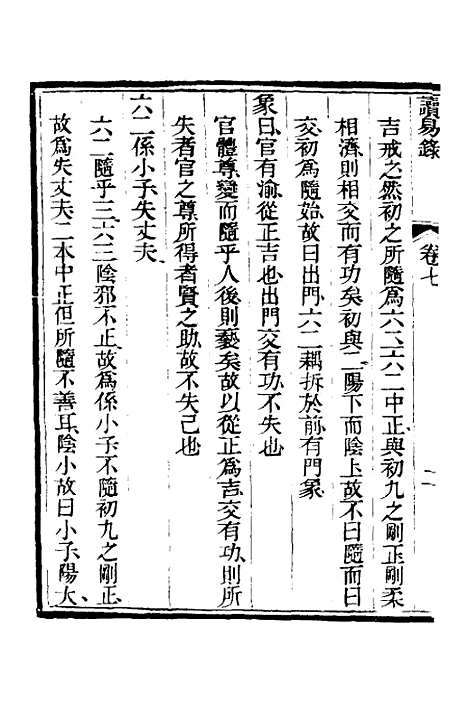 讀易錄
卷七
二
吉戒之然初之所隨爲六二六二中正與初九之剛正剛柔
相濟則相交而有功矣初與二陽下而陰上故不曰隨而曰
交初爲隨始故曰出門六二耦拆於前有門象
象曰官有渝從正吉也出門交有功不失也
官體尊變而隨乎人後則褻矣故以從正爲吉交有功則所
失者官之尊所得者賢之助故不失己也
六二係小子失丈夫
六二隨乎三六三陰邪不正故爲係小子不隨初九之剛正
故爲失丈夫二本中正但所隨不善耳陰小故曰小子陽大